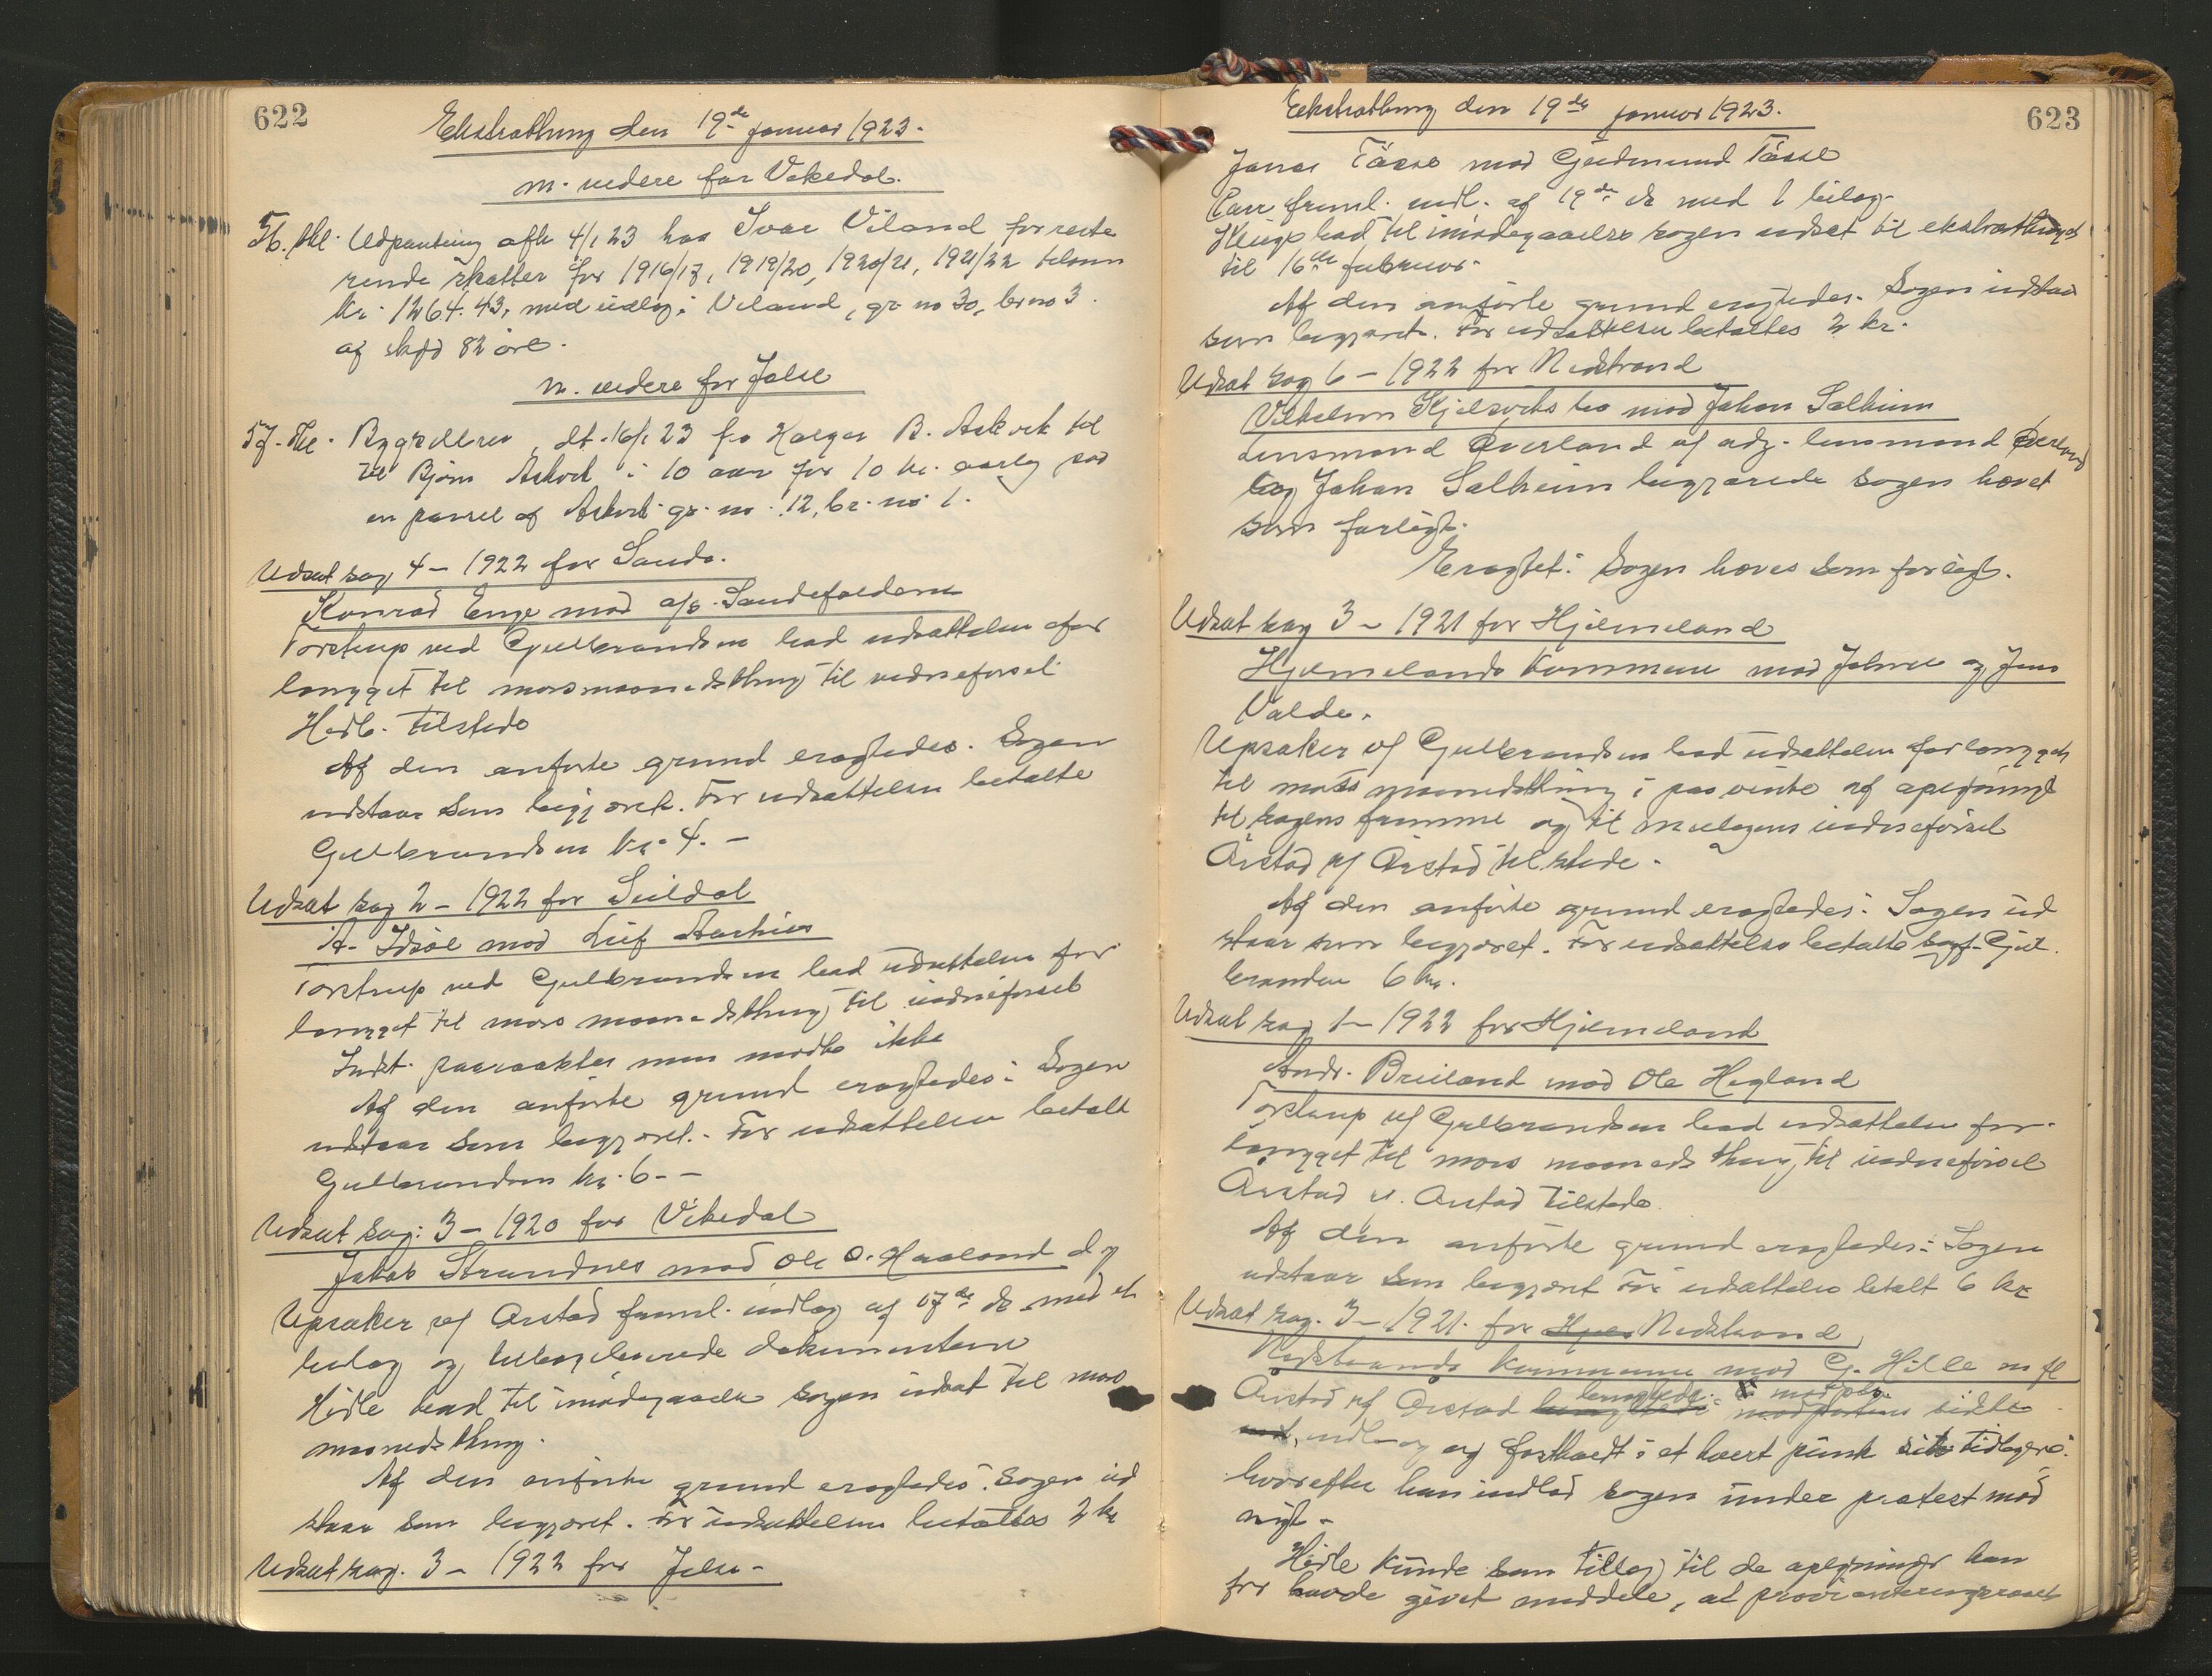 622
Ekstrathing den 19de januar 1923.
m. videre for Vikedal.
56. thl. Udpantning afh 4/1 23 hos Ivar Viland for reste
rende skatter for 1916/17, 1919/20, 1920/21, 1921/22 tilsam
kr. 1264.43, med udlæg i Viland, gr no 30, br no 3.
af skyld 82 øre.
m. videre for Jelse
57. Thl. Bygselbrev, dt. 16/1 23 fra Holger B. Askvik til
til Bjørn Askvik i 10 aar for 10 kr. aarlig paa
en parsel af Askvik gr. no. 12, br. no 1.
Udsat sag 4 – 1922 for Sauda.
Konrad Enge mod a/s. Saudefaldene
Torstrup ved Gulbrandsen bad udsættelse for
længet til mars maanedsthing til vidneførsel
Hidle tilstede
Af den anførte grund eragtedes: Sagen
udstaar som begjæret. For udsættelsen betalte
Gulbrandsen kr. 4. –
Udsat sag 2 – 1922 for Suldal
A. Idsøe mod Leif Aarhus
Torstrup ved Gulbrandsen bad udsættelse for
længet til mars maanedsthing til vidneførsel
Indst. paaraabtes men mødte ikke
Af den anførte grund eragtedes: Sagen
udstaar som begjæret. For udsættelsen betalt
Gulbrandsen kr. 6. –
Udsat sag: 3 – 1920 for Vikedal
Jakob Strandnes mod Ole O. Haaland d.y
Upsaker v/ Arstad freml. indlæg af 17de ds med et
bilag og tilbageleverede dokumenterne
Hidle bad til imødegaaelse sagen udsat til mars
maanedsthing.
Af den anførte grund eragtedes: Sagen ud
staar som begjæret. For udsættelsen betaltes 2 kr
Udsat sag. 3 – 1922 for Jelse –
623
Ekstrathing den 19de januar 1923.
Jonas Tässe mod Gudmund Tässe
freml. indl. af 19de ds med 1 bilag.
bad til imødegaaelse sagen udsat til ekstrathinget
til 16de februar.
Af den anførte grund eragtedes: Sagen udstaar
som begjæret. For udsættelsen betaltes 2 kr.
Udsat sag 6 – 1922 for Nedstrand
Vilhelm Kjelsviks bo mod Johan Salheim
Lensmand Øverland af adj. lensmand Øverland
og Johan Salheim begjærede sagen hævet
som forligt.
Eragtet: Sagen hæves som forligt.
Udsat sag 3 – 1921 for Hjelmeland
Hjelmelands kommune mod Johne og Jens
Valde.
Upsaker v/ Gulbrandsen bad udsættelse forlænget
til mars maanedsthing i paavente af oplysninger
til sagens fremme og til muligens vidneførsel
Årstad v/ Årstad tilstede.
Af den anførte grund eragtedes: Sagen ud
staar som begjæret. For udsættelse betalte sagf. Gul
brandsen 6 kr.
Udsat sag 1 – 1922 for Hjelmeland
Andr. Breiland mod Ole Hegland
Torstrup v/ Gulbrandsen bad udsættelse for-
længet til mars maaneds thing til vidneførsel
Årstad v. Arstad tilstede.
Af den anførte grund eragtedes: Sagen
udstaar som begjæret For udsættelse betalt 6 kr
Udsat sag. 3 – 1921. for Hjel Nedstrand
Nedstrands kommune mod G. Hille m fl
Årstad v/ Arstad benegtede modpartens sidste
indlæg og fastholdt i et hvert punkt sit tidligere
hvorefter han indlod sagen under protest mod
nyt –
Hidle kunde som tillæg til de oplysninger han
før havde givet meddele, at provianteringsraadet